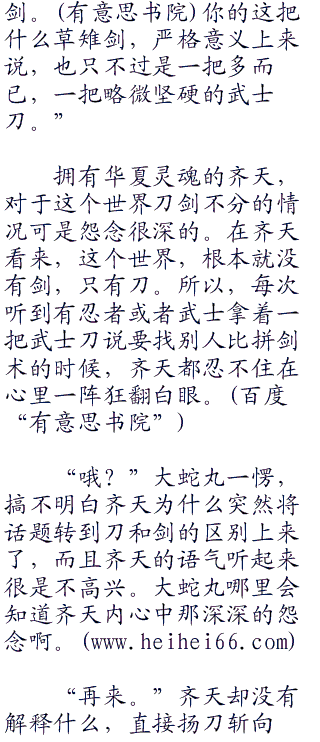 剑。(有意思书院)你的这把
什么草雉剑，严格意义上来
说，也只不过是一把多而
已，一把略微坚硬的武士
刀。”
拥有华夏灵魂的齐天，
对于这个世界刀剑不分的情
况可是怨念很深的。在齐天
看来，这个世界，根本就没
有剑，只有刀。所以，每次
听到有忍者或者武士拿着一
把武士刀说要找别人比拼剑
术的时候，齐天都忍不住在
心里一阵狂翻白眼。(百度
“有意思书院”)
“哦？”大蛇丸一愣，
搞不明白齐天为什么突然将
话题转到刀和剑的区别上来
了，而且齐天的语气听起来
很是不高兴。大蛇丸哪里会
知道齐天内心中那深深的怨
念啊。(www.heihei66.com)
“再来。”齐天却没有
解释什么，直接扬刀斩向